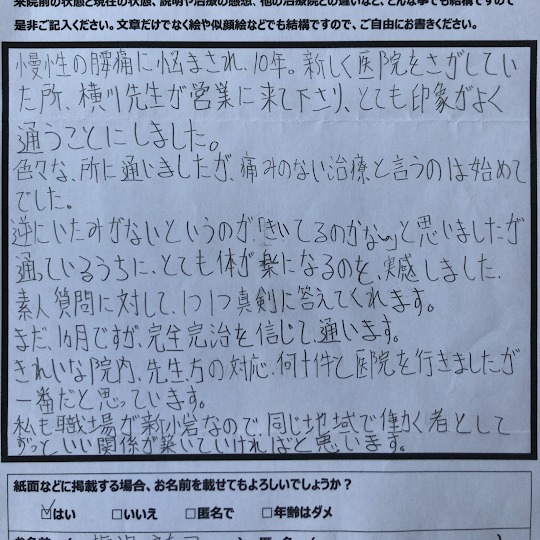 来院前の状態と現在の状態、説明や治療の感想、他の治療院との違いなど、どんな事でも結構ですので
是非ご記入ください。文章だけでなく絵や似顔絵などでも結構ですので、ご自由にお書きください。
慢性の腰痛に悩まされ、10年。新しく医院をさがしてい
た所、横川先生が営業に来て下さり、とても印象がよく
通うことにしました。
色々な、所に通いましたが、痛みのない治療と言うのは始めて
でした。
逆にいたみがないというのが、「きいてるのかな〜」と思いましたが
通っているうちに、とても体が楽になるのを、実感しました、
素人質問に対して、1つ1つ真剣に答えてくれます。
まだ、1ヵ月ですが、完全完治を信じて、通います。
きれいな院内、先生方の対応、何十件と医院を行きましたが
一番だと思っています。
私も職場が新小岩なので、同じ地域で働く者として
ずっといい関係が築いていければと思います。
紙面などに掲載する場合、お名前を載せてもよろしいでしょうか？
☑はい □いいえ □匿名で □年齢はダメ